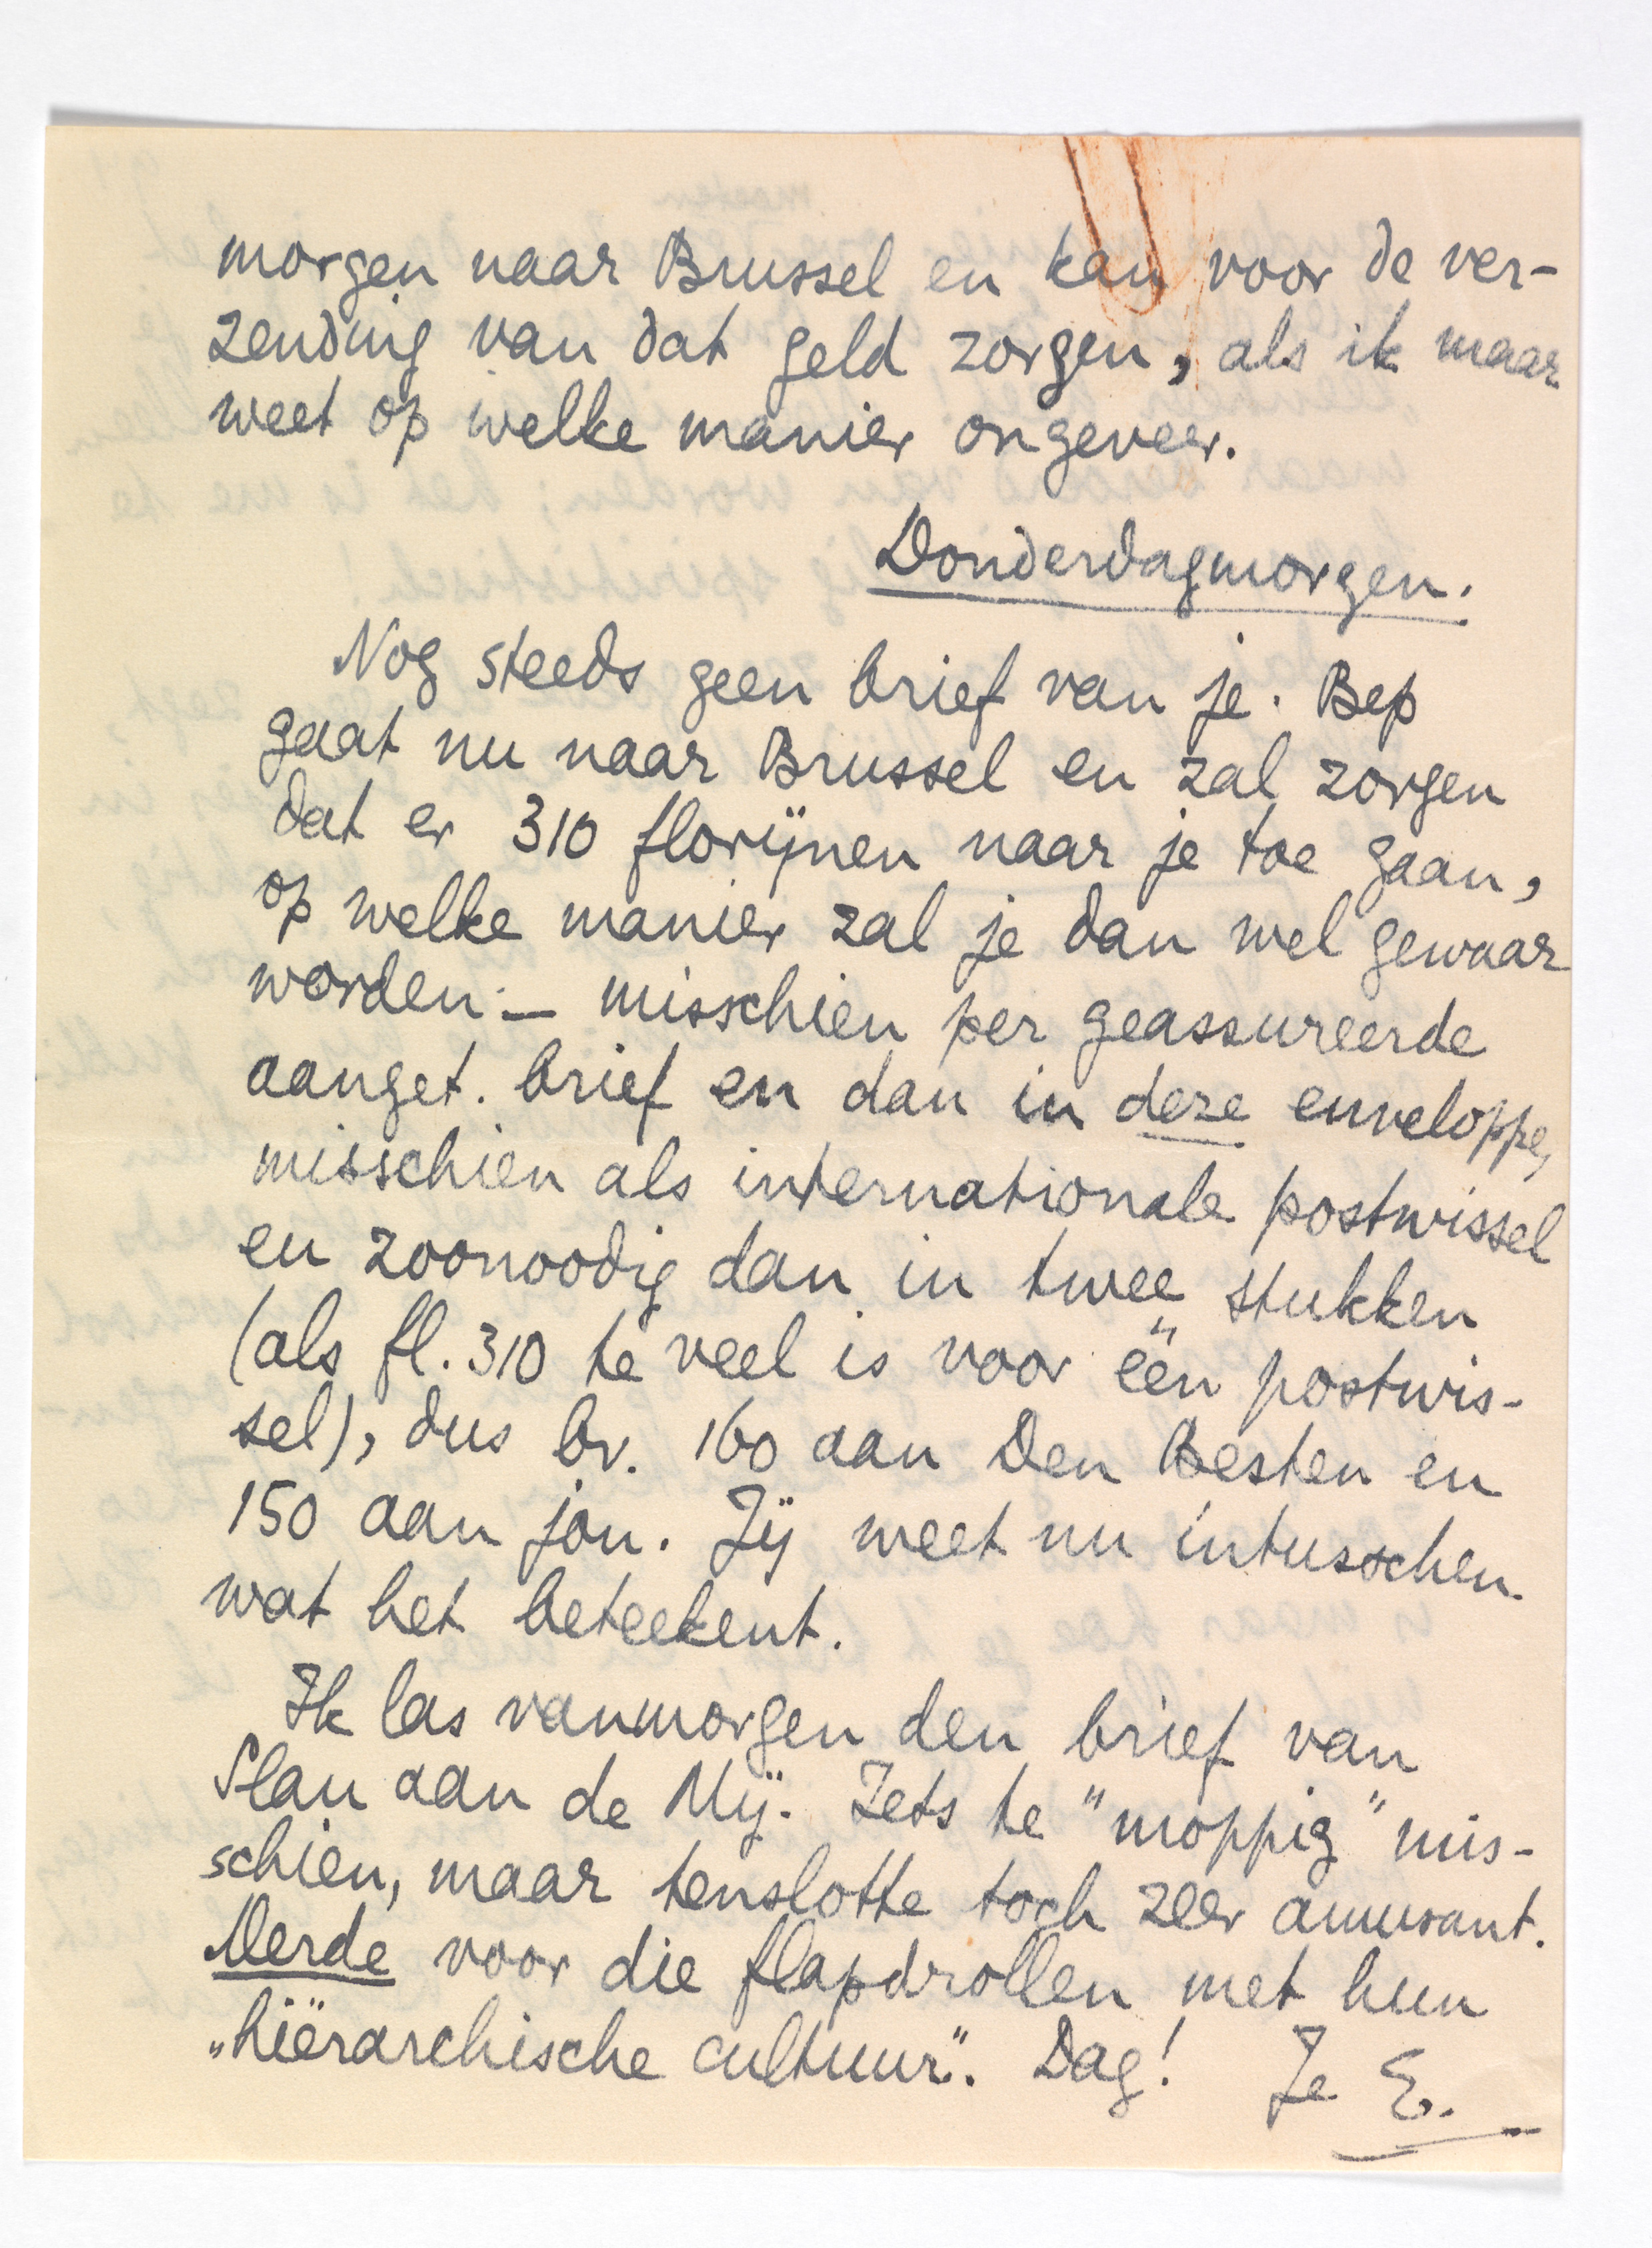 morgen naar Brussel en kan voor de ver-
zending van dat geld zorgen, als ik maar
weet op welke manier ongeveer.
Donderdagmorgen.
Nog steeds geen brief van je. Bep
gaat nu naar Brussel en zal zorgen
dat er 310 florijnen naar je toe gaan,
op welke manier zal je dan wel gewaar
worden – misschien per geassureerde
aanget. brief en dan in deze enveloppe,
misschien als internationale postwissel
en zoonoodig dan in twee stukken
(als fl. 310 te veel is voor één postwis-
sel), dus bv. 160 aan Den Besten en
150 aan jou. Jij weet nu intusschen
wat het beteekent.
Ik las vanmorgen den brief van
Slau aan de Mij. Iets te "moppig" mis-
schien, maar tenslotte toch zeer amusant.
Merde voor die flapdrollen met hun
„hiërarchische cultuur". Dag! Je E.